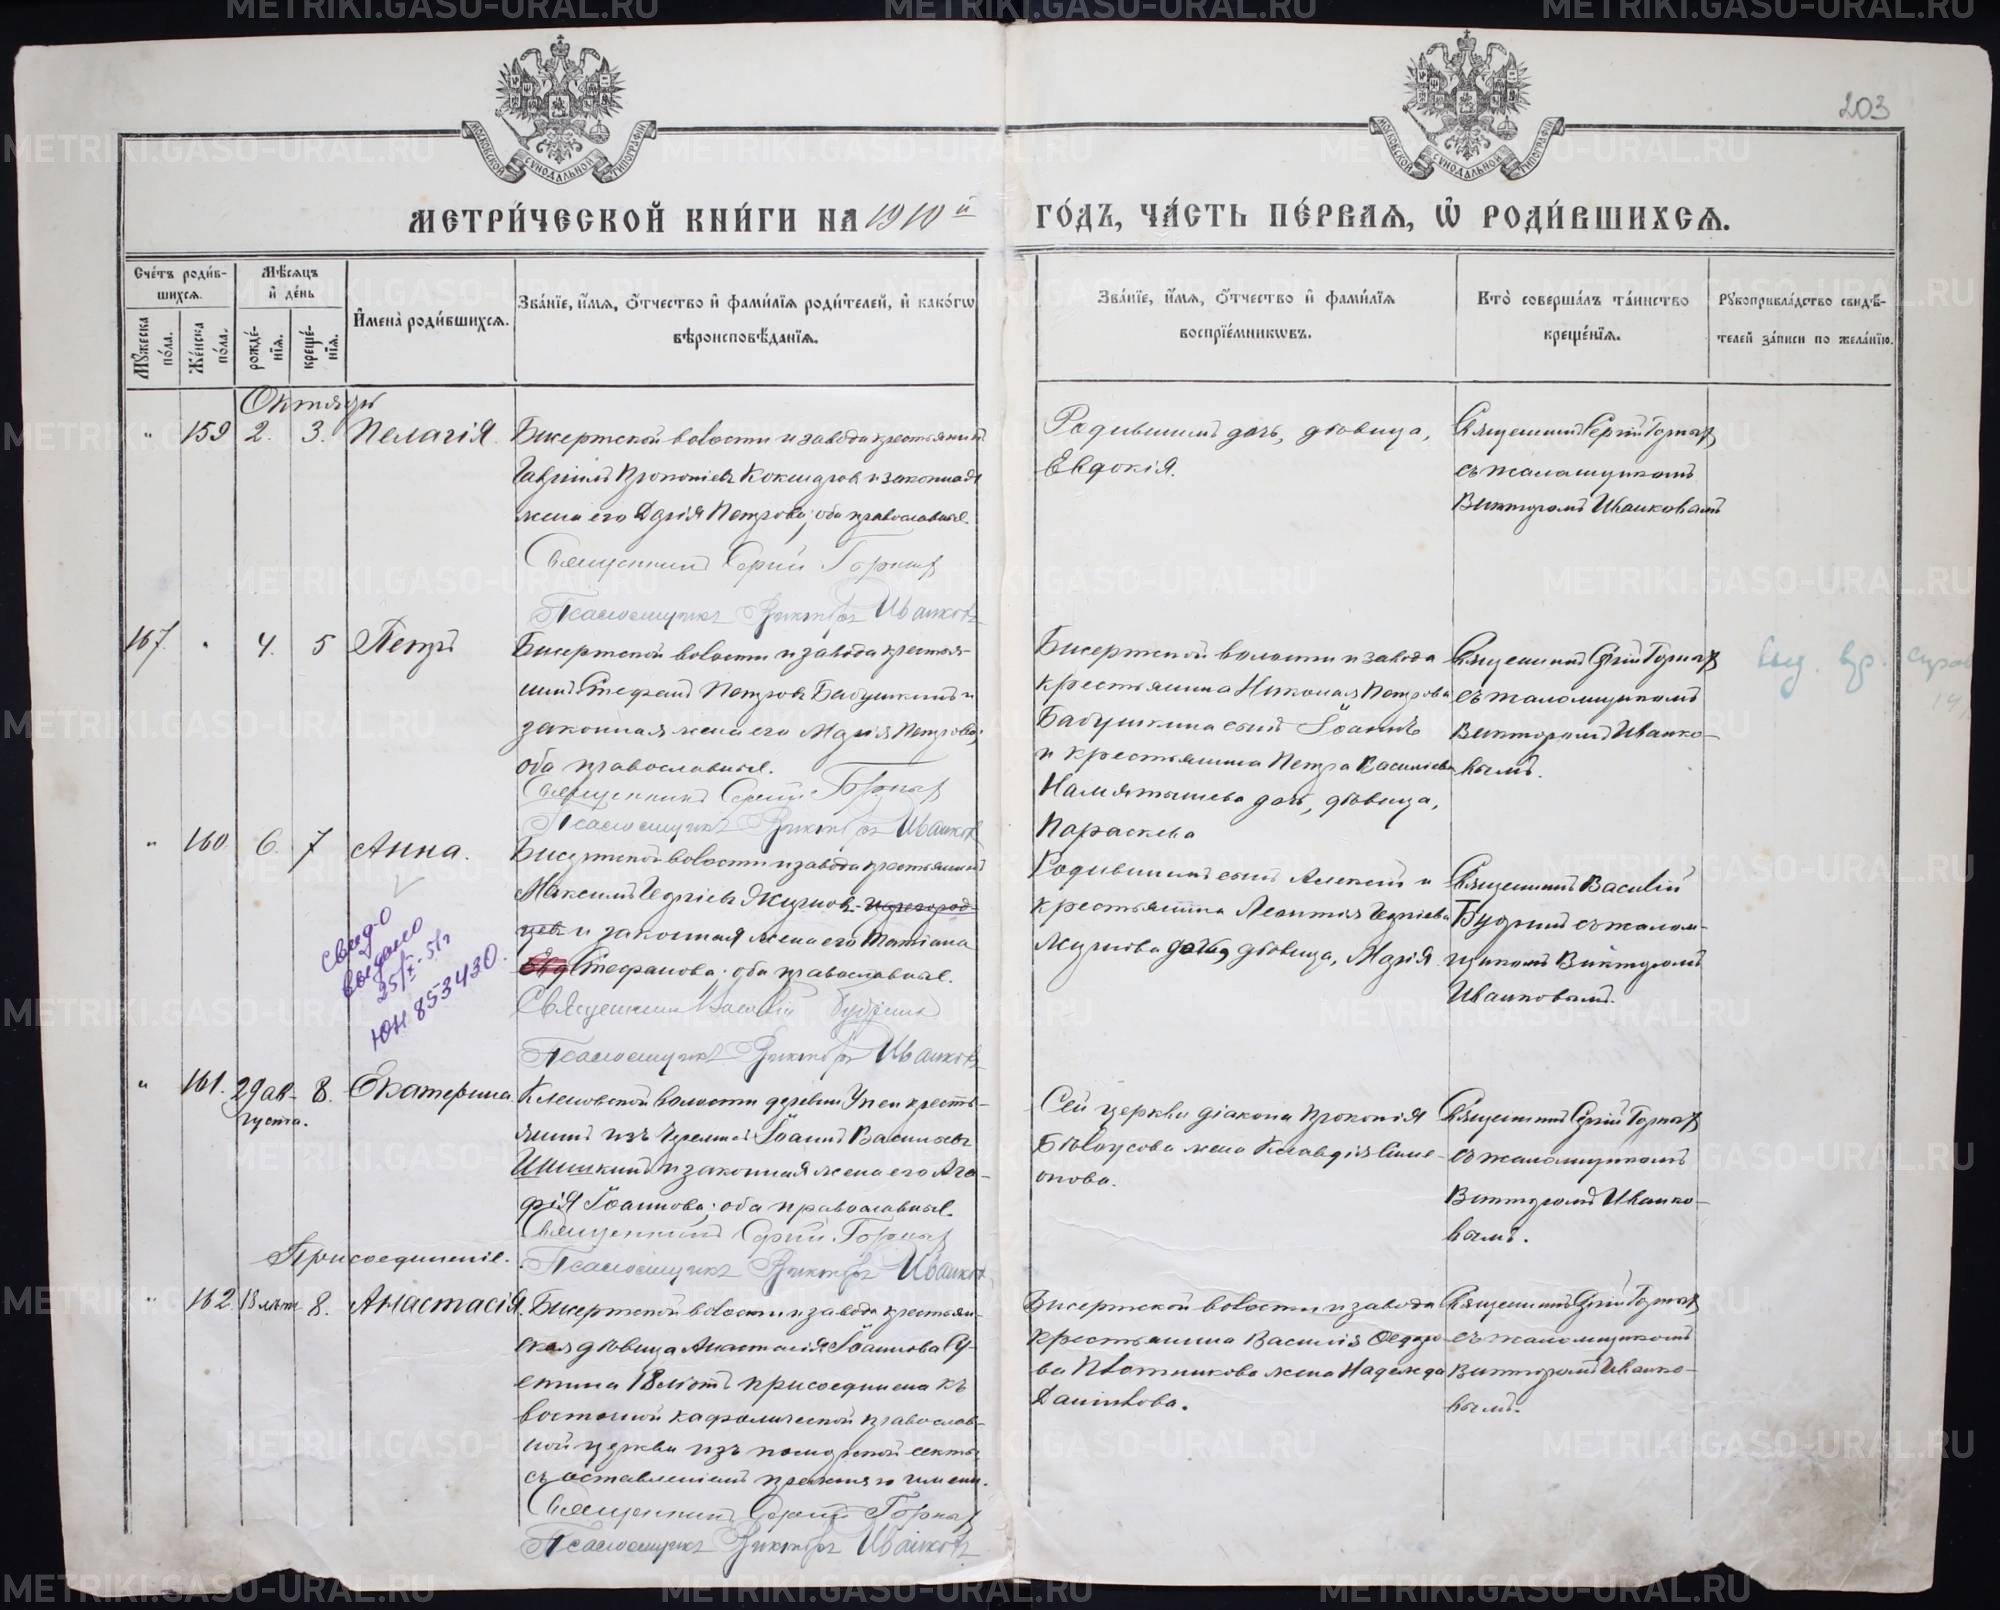 203
МОСКОВСКОЙ СѴНОДАЛЬНОЙ ТИПОГРАФІИ
МОСКОВСКОЙ СѴНОДАЛЬНОЙ ТИПОГРАФІИ
МЕТРИ́ЧЕСКОЙ КНИ́ГИ НА 1910й ГО́ДЪ, ЧА́СТЬ ПЕ́РВАѦ, Ѡ РОДИ́ВШИХСѦ.
Сче́тъ роди́в-
шихсѧ.
Мꙋжеска по́ла.
Же́нска по́ла.
Мѣ́сѧцъ
и де́нь
рожде́-
нїѧ.
креще́-
нїѧ.
Имена̀ роди́вшихсѧ.
Зва́нїе, и́мѧ, о́тчество и фами́лїѧ роди́телей, и како́гѡ
вѣроисповѣ́данїѧ.
Зва́нїе, и́мѧ, о́тчество и фами́лїѧ
воспрїе́мникѡвъ.
Кто̀ соверша́лъ та́инство
креще́нїѧ.
Рꙋкоприкла́дство свидѣ́-
телей за́писи по жела́нїю.
Октябрь
" 159 2. 3. Пелагія.
Бисертской волости и завода крестьянинъ
Гавріилъ Прокопіевъ Кокшаровъ и законная
жена его Дарія Петрова; оба православные.
Священникъ Сергій
Псаломщикъ Викторъ Иваиковъ
Родившихъ дочь, дѣвица,
Евдокія.
Священникъ Сергій
съ псаломщикомъ
Викторомъ Иваиковымъ
167. " 4. 5 Петръ
Бисертской волости и завода крестья-
нинъ Стефанъ Петровъ Бабушкинъ и
законная жена его Марія Петрова;
оба православные.
Священникъ Сергій
Псаломщикъ Викторъ Иваиковъ
Бисертской волости и завода
крестьянина Николая Петрова
Бабушкина сынъ Іоаннъ
и крестьянина Петра Василіева
дочь, дѣвица,
Параскева
Священникъ Сергій
съ псаломщикомъ
Викторомъ Иваико-
вымъ.
" 160 6. 7 Анна.
свид-о
выдано
25/X-51г
ЮН 853430.
Бисертской волости и завода крестьянинъ
Максимъ Георгіевъ
и законная жена его Татіана
Стефанова; оба православные.
Священникъ Василій
Псаломщикъ Викторъ Иваиковъ
Родившихъ сынъ Алексій и
крестьянина Леонтія Георгіева
дочь дѣвица, Марія.
Священникъ Василій
съ псалом-
щикомъ Викторомъ
Иваиковымъ.
" 161. 29 ав-
густа. 8. Екатерина.
Кленовской волости деревни крестья-
нинъ изъ Іоаннъ Васильевъ
и законная жена его Ага-
фія Іоаннова; оба православные.
Священникъ Сергій
Псаломщикъ Викторъ Иваиковъ
Сей церкви діакона Прокопія
Бѣлоусова жена Клавдія Симе-
онова.
Священникъ Сергій
съ псаломщикомъ
Викторомъ Иваико-
вымъ.
Присоединеніе.
" 162. 18 лѣтъ 8. Анастасія.
Бисертской волости и завода крестьян-
ская дѣвица Анастасія Іоаннова Су-
етина 18 лѣтъ присоединена къ
восточной каѳолической православ-
ной церкви изъ поморской секты
съ оставленіемъ прежняго имени.
Священникъ Сергій
Псаломщикъ Викторъ Иваиковъ
Бисертской волости и завода
крестьянина Василія Ѳедоро-
ва Плотникова жена Надежда
Даніилова.
Священникъ Сергій
съ псаломщикомъ
Викторомъ Иваико-
вымъ.
METRIKI.GASO-URAL.RU